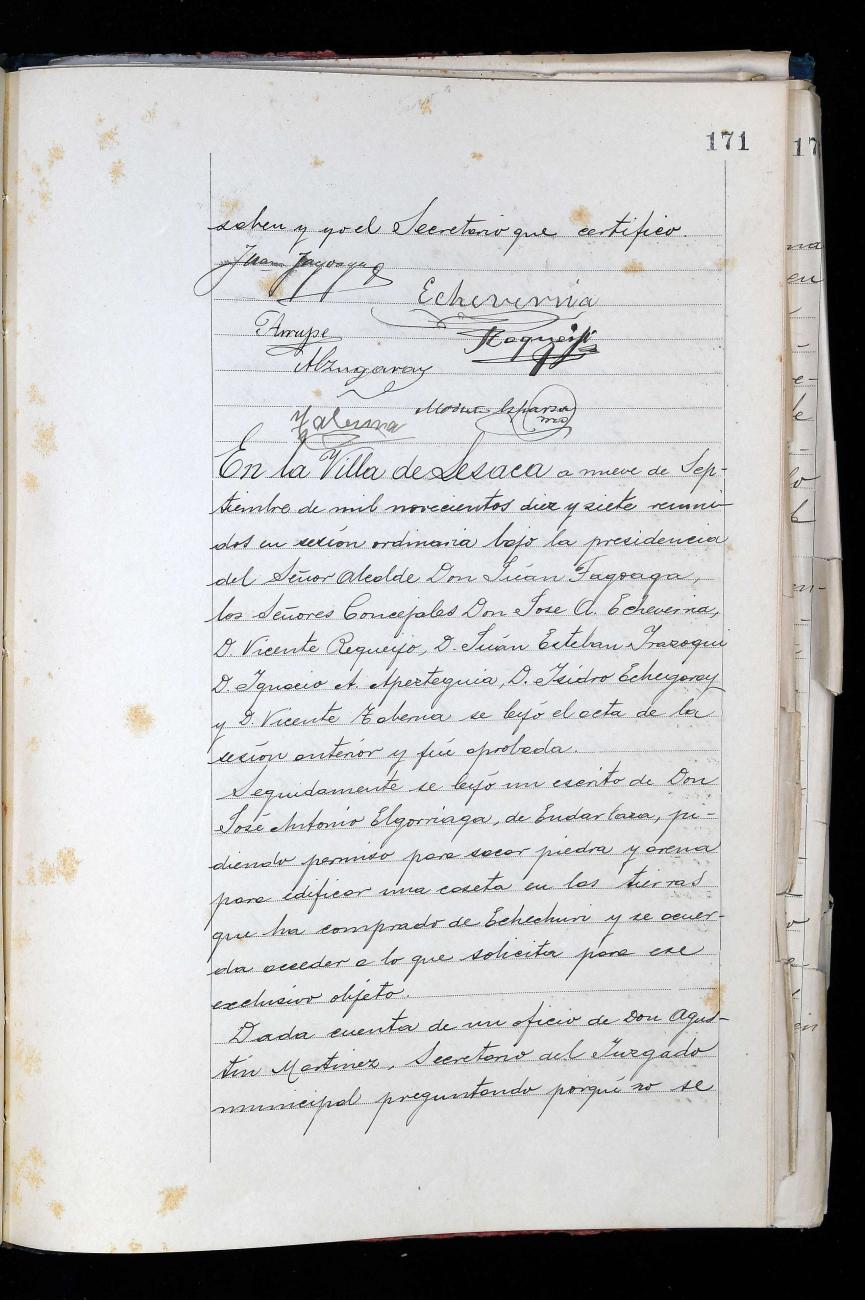 171
saben y yo el Secretario que certifico.
Juan Fagoaga
Echeverria
Arrupe
Requeijo
Alzugaray
Esparza
Taberna
En la Villa de Lesaca a nueve de Sep-
tiembre de mil novecientos diez y siete reuni-
dos en sesión ordinaria bajo la presidencia
del Señor Alcalde Don Juán Fagoaga,
los Señores Concejales Don Jose A. Echeverria,
D. Vicente Requeijo, D. Juán Esteban Irazoqui
D. Ignacio A. Aperteguia, D. Isidro Echegaray
y D. Vicente Taberna se leyó el acta de la
sesión anterior y fué aprobada.
Seguidamente se leyó un escrito de Don
José Antonio Elgorriaga, de Endarlaza, pi-
diendo permiso para sacar piedra y arena
para edificar una caseta en las tierras
que ha comprado de Echechuri y se acuer-
da acceder a lo que solicita para ese
exclusivo objeto.
Dada cuenta de un oficio de Don Agus-
tín Martinez, Secretario del Juzgado
municipal preguntando porqué no se